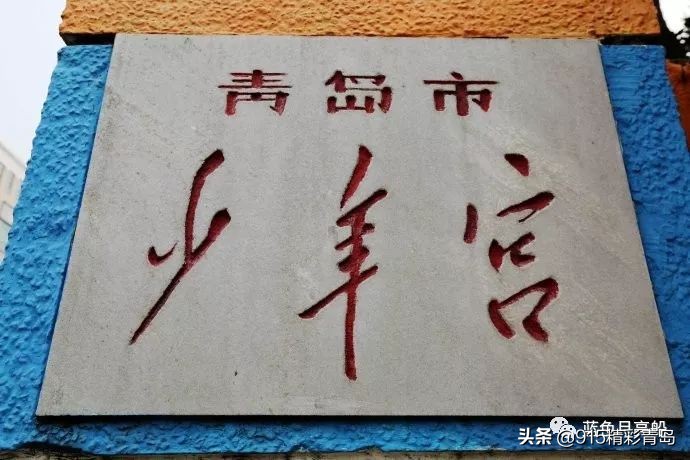 青岛市
少年宫
蓝色月亮船
头条@915精彩青岛